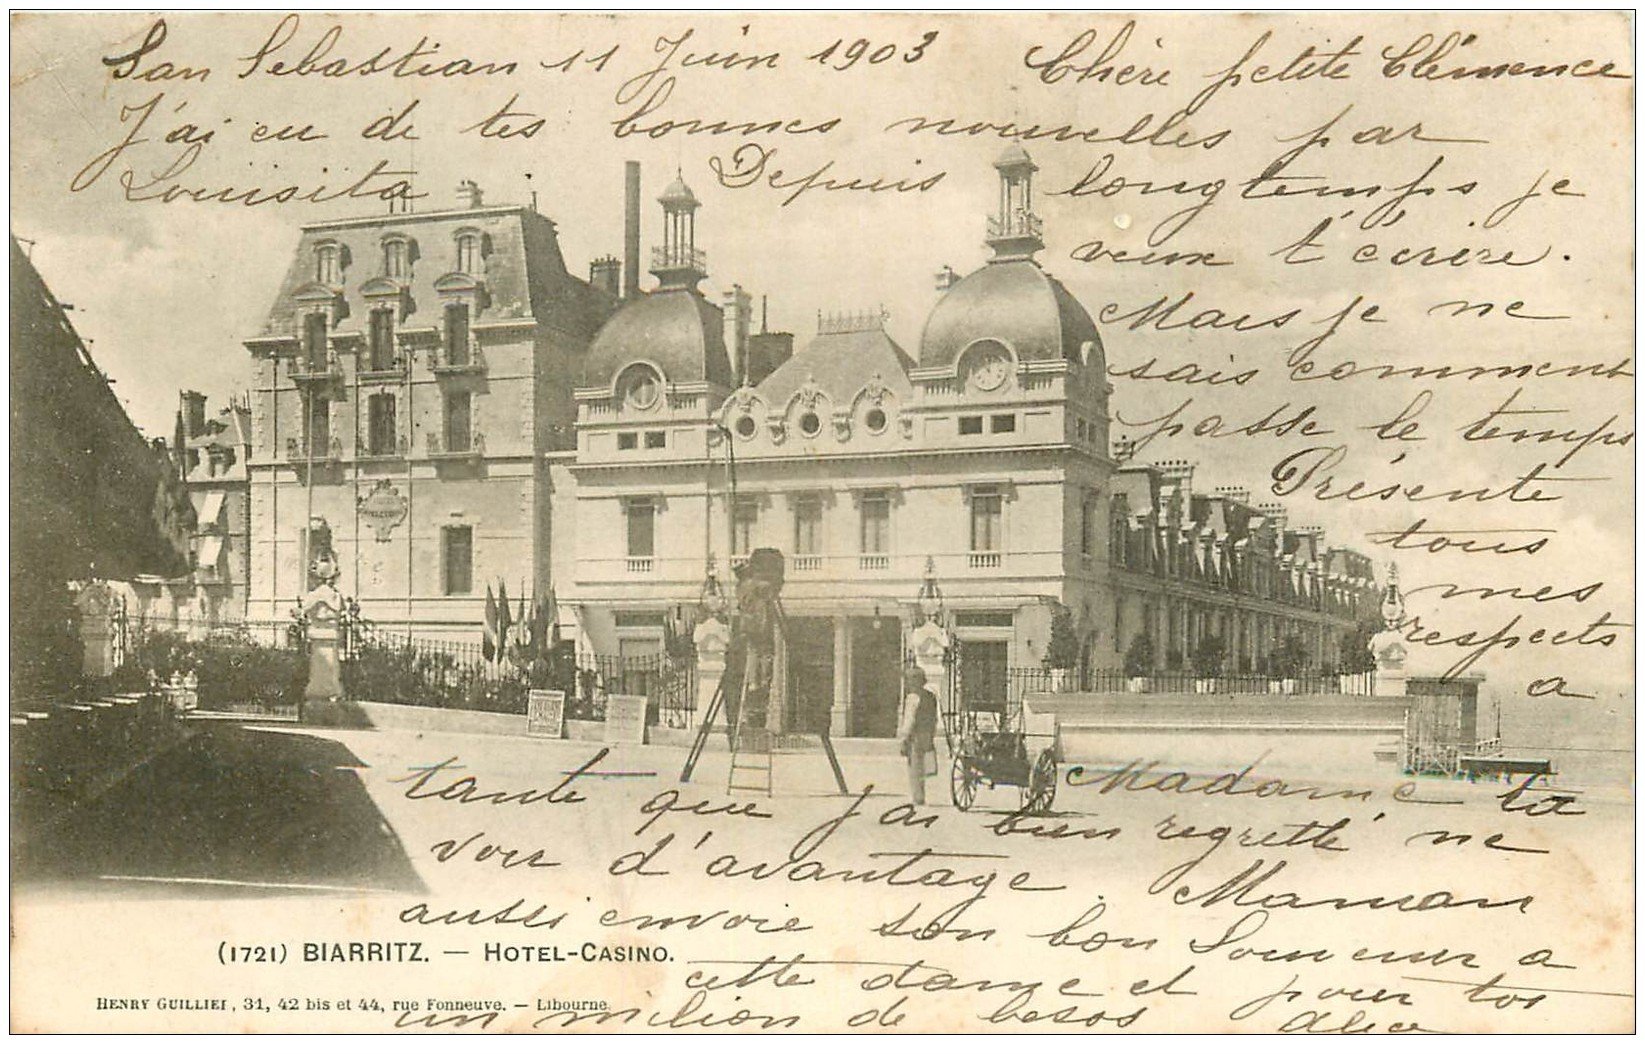 San Sebastian 11 Juin 1903 Chère petite Clémence
J'ai eu de tes bonnes nouvelles par
Louisita Depuis longtemps je
veux t'écrire.
Mais je ne
sais comment
passe le temps
Présente
tous
mes
respects
a
Madame ta
tante que j'ai bien regretté ne
voir d'avantage. Maman
aussi envoie son bon Souvenir a
cette dame et pour toi
un milion de besos Alice
(1721) BIARRITZ. — HOTEL-CASINO.
HENRY GUILLIER, 31, 42 bis et 44, rue Fonneuve. — Libourne.